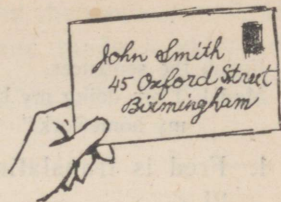 John Smith
45 Oxford Street
Birmingham